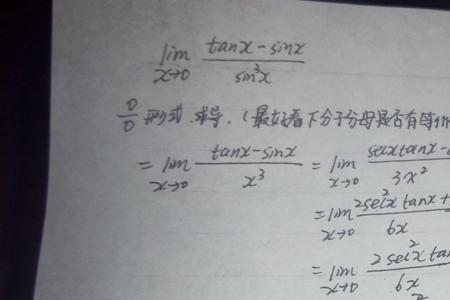 lim x→0 (tanx - sinx) / (sin³x)
0/0 形式.求导.(最好看下分子分母是否有等价
= lim x→0 (tanx - sinx) / (x³) = lim x→0 (secxtanx - / (3x²)
= lim x→0 (2sec²x tanx + / (6x)
= lim x→0 (2 sec²x tan / (6x)